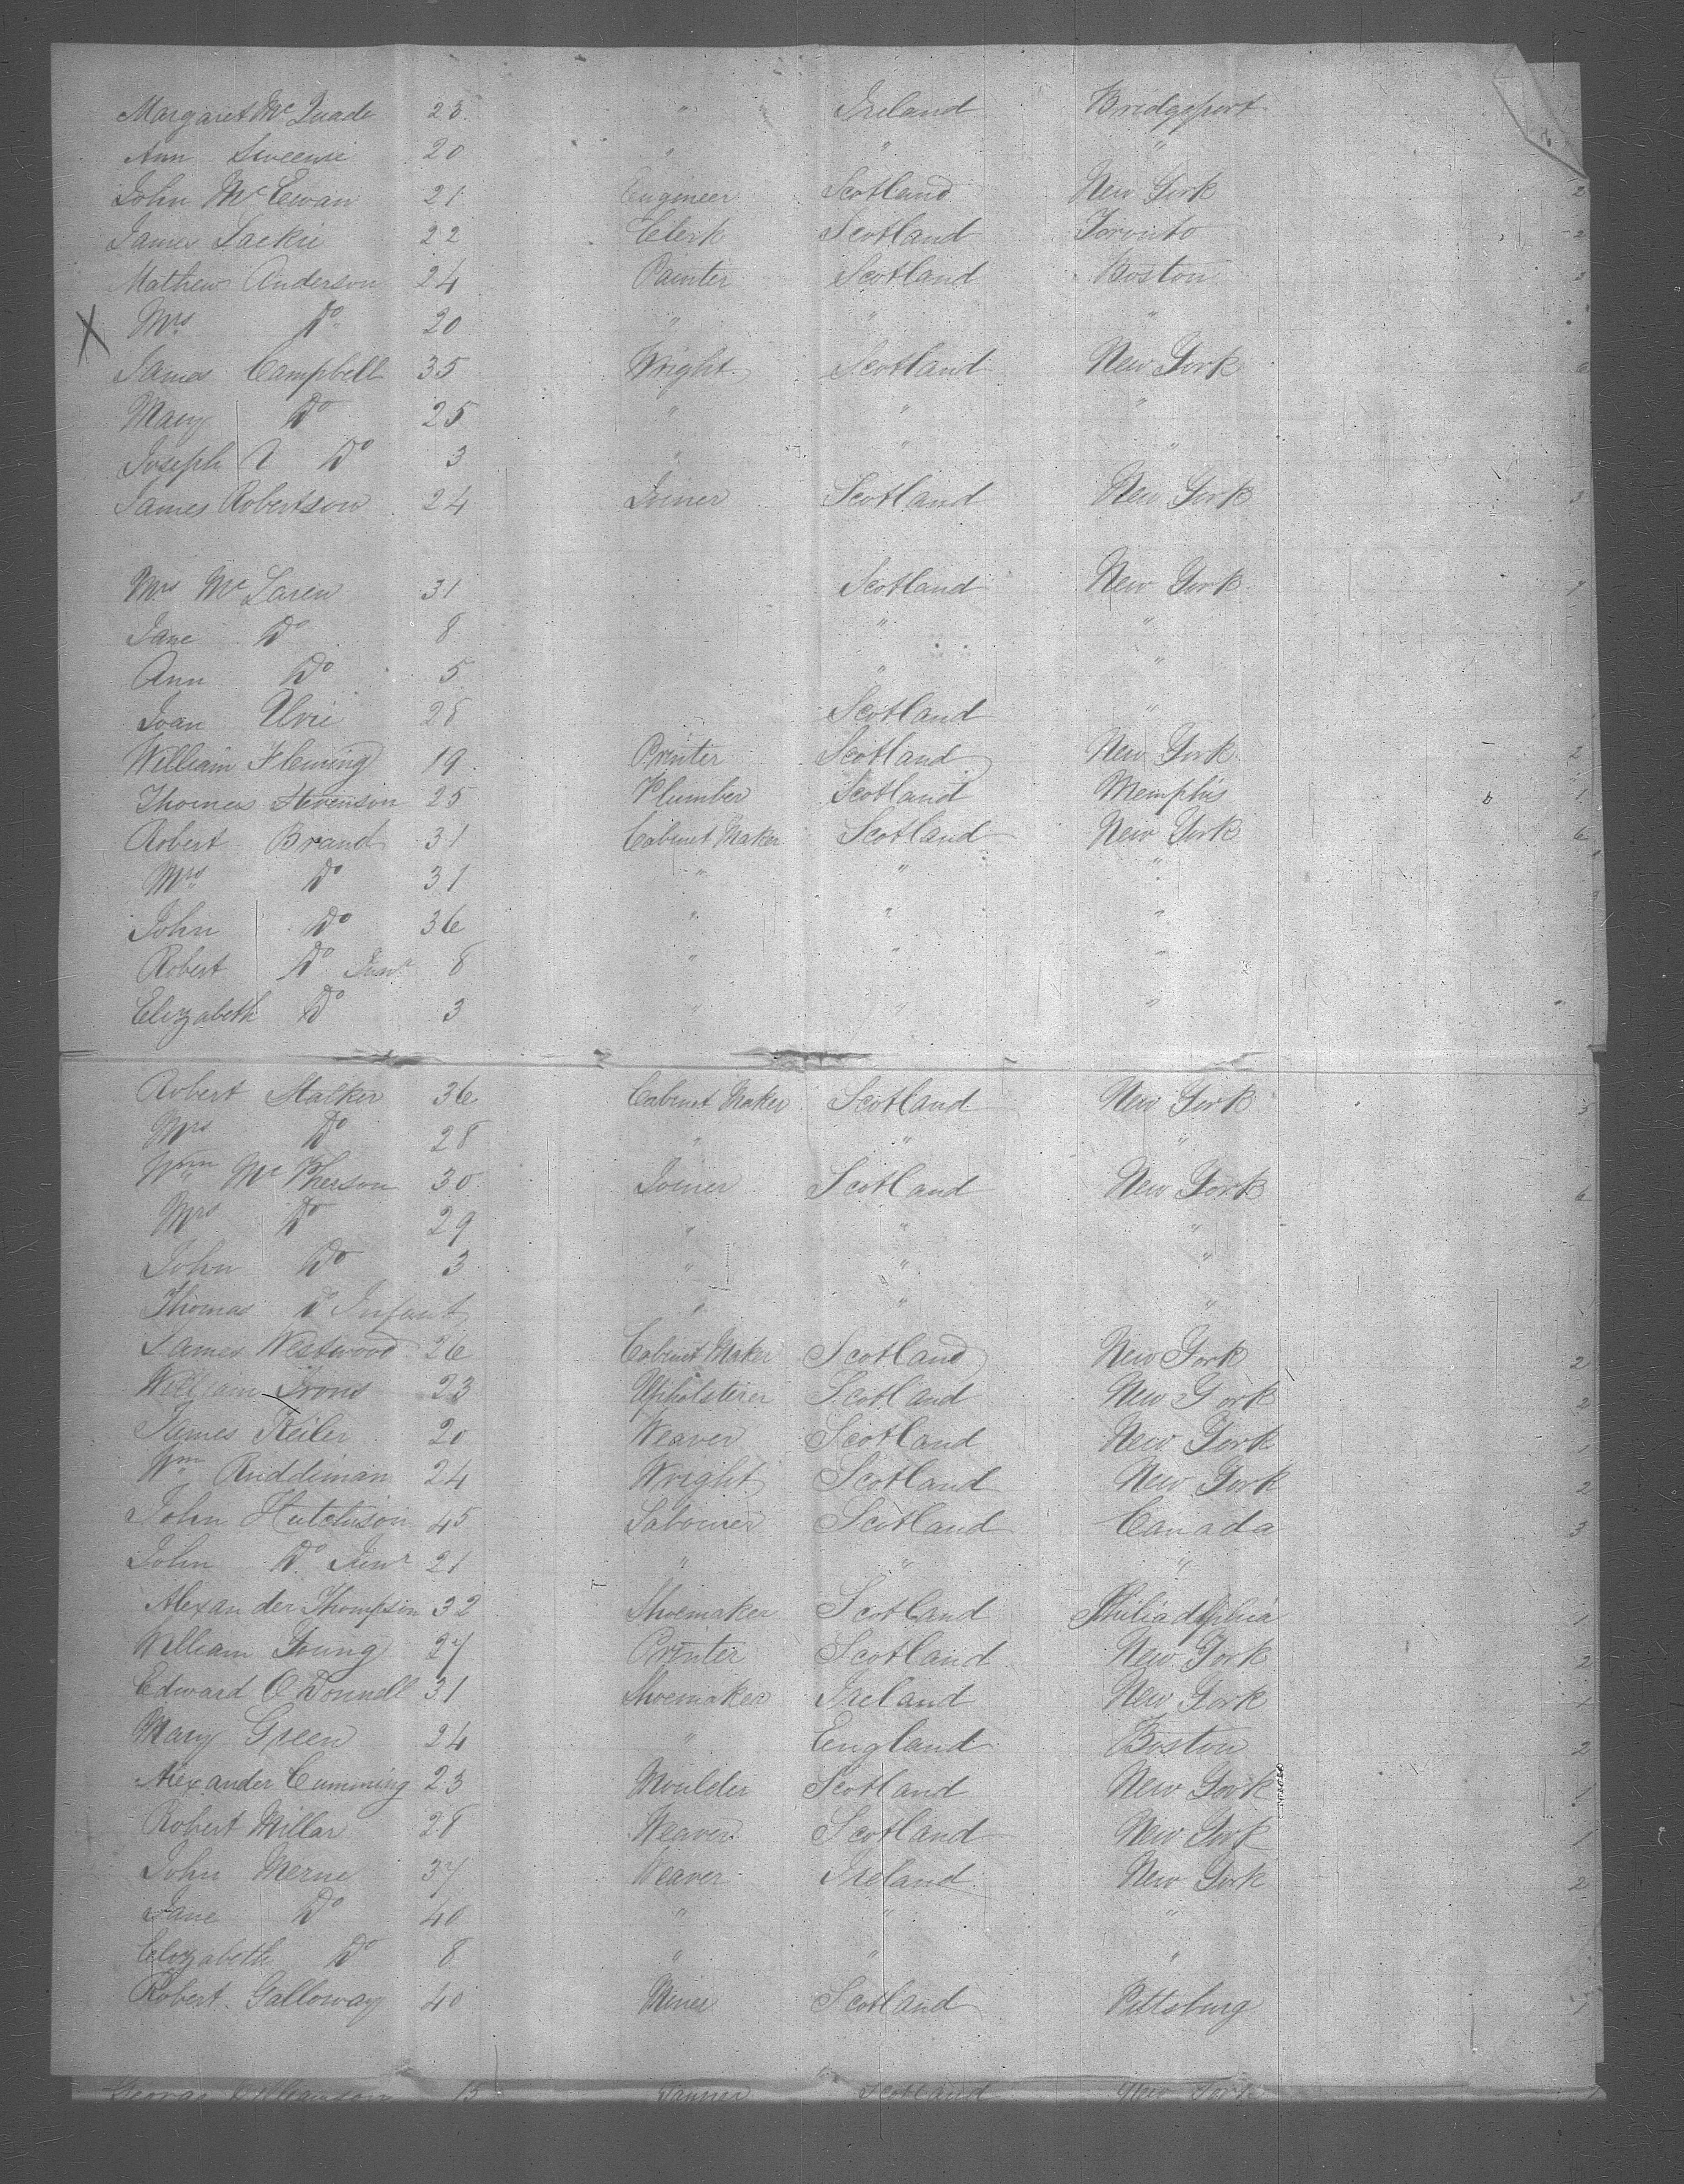 Margaret Mc Quade 23 " Ireland Bridgeport
Ann Sweenie 20 " " "
John Mc Ewan 21 Engineer Scotland New York 2
James Lackie 22 Clerk Scotland Toronto 2
Mathew Anderson 24 Painter Scotland Boston 3
X Mrs Do 20 " " "
James Campbell 35 Wright Scotland New York 6
Mary Do 25 " " "
Joseph Do 3 " " "
James Robertson 24 Joiner Scotland New York 3
Mrs Mc Laren 31 Scotland New York 7
Jane Do 8 " "
Ann Do 5 " "
Joan 28 Scotland "
William Fleming 19 Printer Scotland New York 2
Thomas Stevenson 25 Plumber Scotland Memphis 1
Robert Brand 31 Cabinet Maker Scotland New York 6
Mrs Do 31 " " "
John Do 36 " " "
Robert Do Junr 8 " " "
Elizabeth Do 3 " " "
Robert Stalker 36 Cabinet Maker Scotland New York 3
Mrs Do 28 " " "
Wm Mc Pherson 30 Joiner Scotland New York 6
Mrs Do 29 " " "
John Do 3 " " "
Thomas Do Infant " " "
James Westwood 26 Cabinet Maker Scotland New York 2
William Irons 23 Upholsterer Scotland New York 2
James Keiler 20 Weaver Scotland New York 1
Wm Ruddiman 24 Wright Scotland New York 2
John Hutchison 45 Labourer Scotland Canada 3
John Do Junr 21 " " "
Alexander Thompson 32 Shoemaker Scotland Philiadelphia 1
William Young 27 Printer Scotland New York 2
Edward O Donnell 31 Shoemaker Ireland New York 1
Mary Green 24 " England Boston 2
Alexander Cumming 23 Moulder Scotland New York 1
Robert Millar 28 Weaver Scotland New York 1
John Merne 37 Weaver Ireland New York 2
Jane Do 40 " " "
Elizabeth Do 8 " " "
Robert Galloway 40 Miner Scotland Pittsburg 1
George Williamson Scotland New York